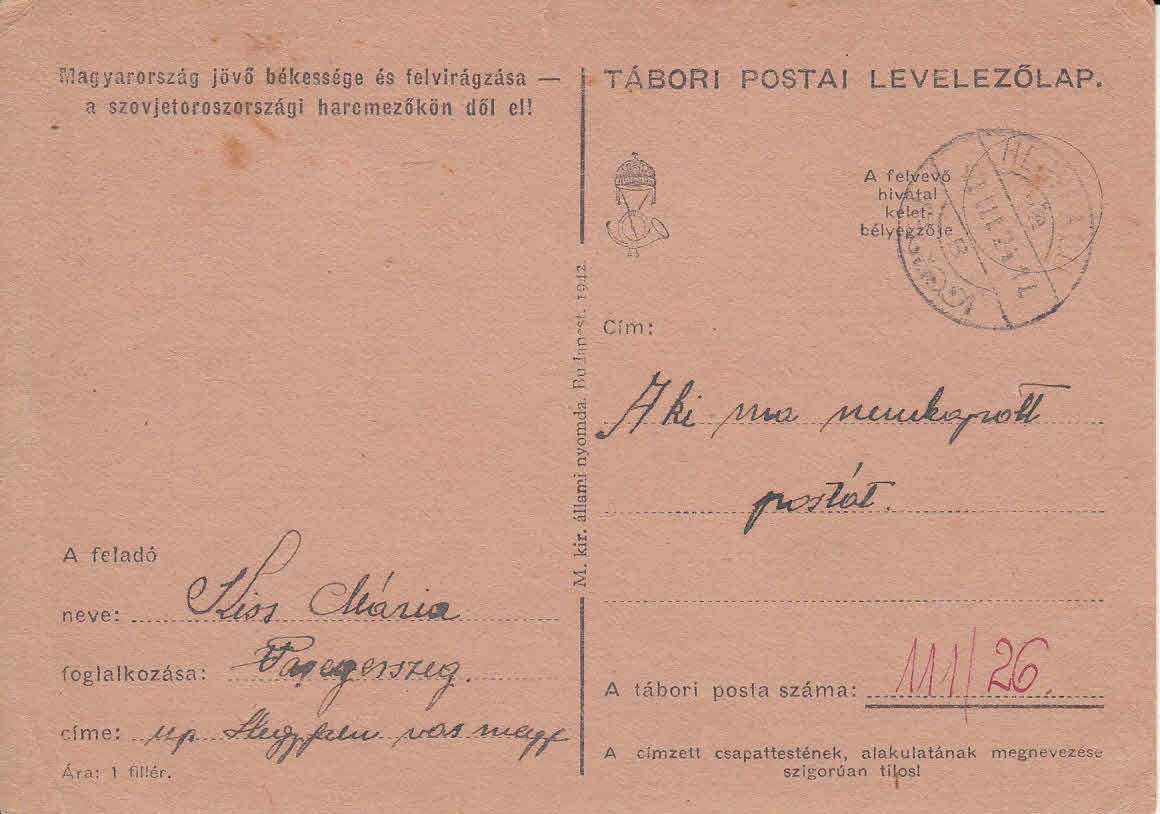 Magyarország jövő békessége és felvirágzása —
a szovjetoroszországi harcmezőkön dől el!
TÁBORI POSTAI LEVELEZŐLAP.
A felvevő
hivatal
kelet-
bélyegzője
B
M. kir. állami nyomda. Budapest. 1942.
Cím:
Aki ma nemkapott
postát.
A feladó
neve: Kiss Mária
foglalkozása:
címe: up Hegyfalu vas megy
Ára: 1 fillér.
A tábori posta száma: 111/26.
A címzett csapattestének, alakulatának megnevezése
szigorúan tilos!